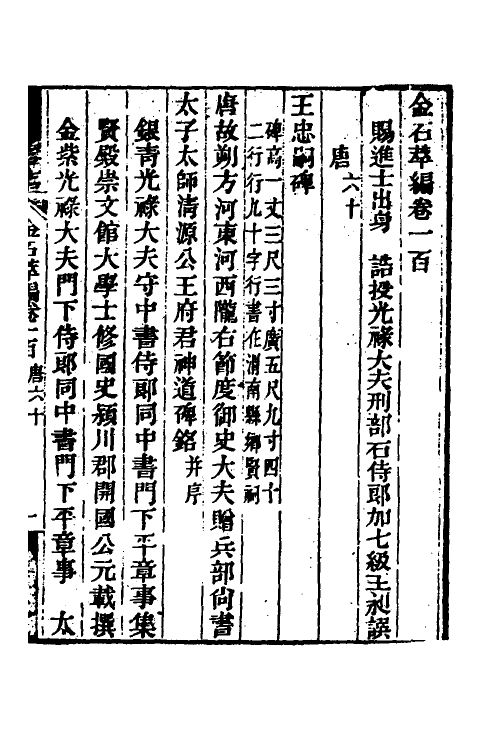 金石萃編卷一百
賜進士出身　誥授光祿大夫刑部右侍郎加七級王昶譔
唐六十
王忠嗣碑
碑高一丈三尺三寸廣五尺九寸四十
二行行九十字行書在渭南縣鄉賢祠
唐故朔方河東河西隴右節度御史大夫贈兵部尙書
太子太師清源公王府君神道碑銘并序
銀靑光祿大夫守中書侍郎同中書門下平章事集
賢殿崇文館大學士修國史潁川郡開國公元載撰
金紫光祿大夫門下侍郎同中書門下平章事　太
金石萃編卷一百　唐六十　一